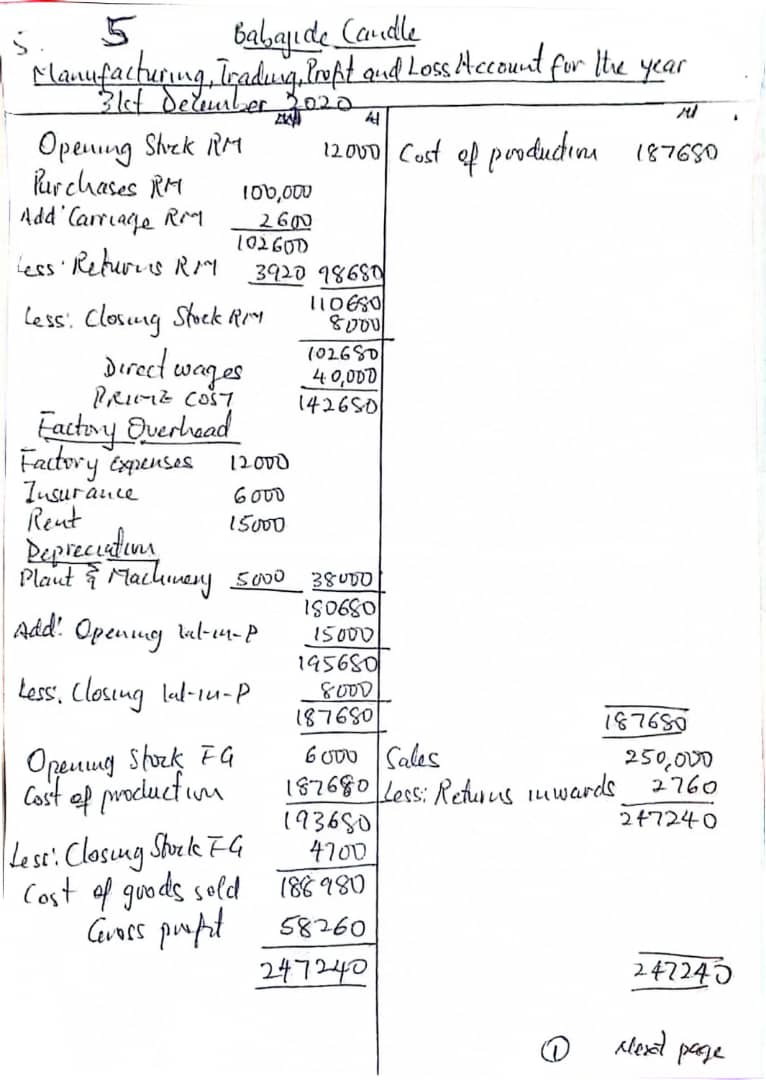 5. 5 Babajide Candle
Manufacturing, Trading, Profit and Loss Account for the year
31st December 2020
Opening Stock RM 12000 Cost of production 187680
Purchases RM 100,000
Add: Carriage RM 2600
102600
Less: Returns RM 3920 98680
110680
Less: Closing Stock RM 8000
102680
Direct wages 40,000
PRIME COST 142680
Factory Overhead
Factory Expenses 12000
Insurance 6000
Rent 15000
Depreciation
Plant & Machinery 5000 38000
180680
Add: Opening W-in-P 15000
195680
Less: Closing W-in-P 8000
187680 187680
Opening Stock FG 6000 Sales 250,000
Cost of production 187680 Less: Returns inwards 2760
193680 247240
Less: Closing Stock FG 4700
Cost of goods sold 188980
Gross profit 58260
247240 247240
① Next page